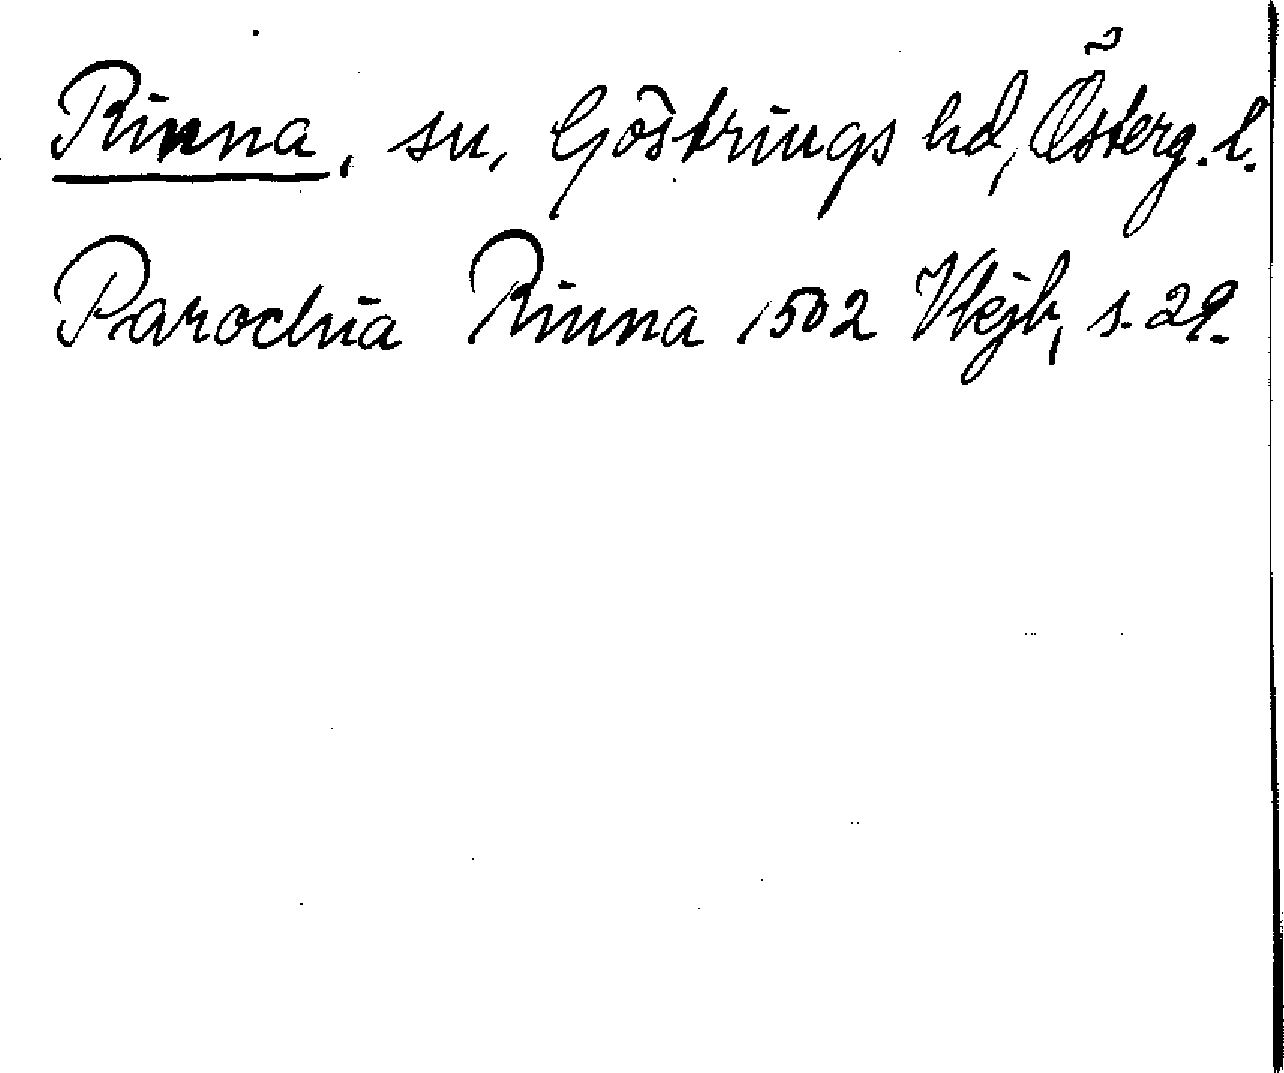 Rinna, sn, Göstrings hd, Österg. l.
Parochia Rinna 1502 Vkjb, s. 29.